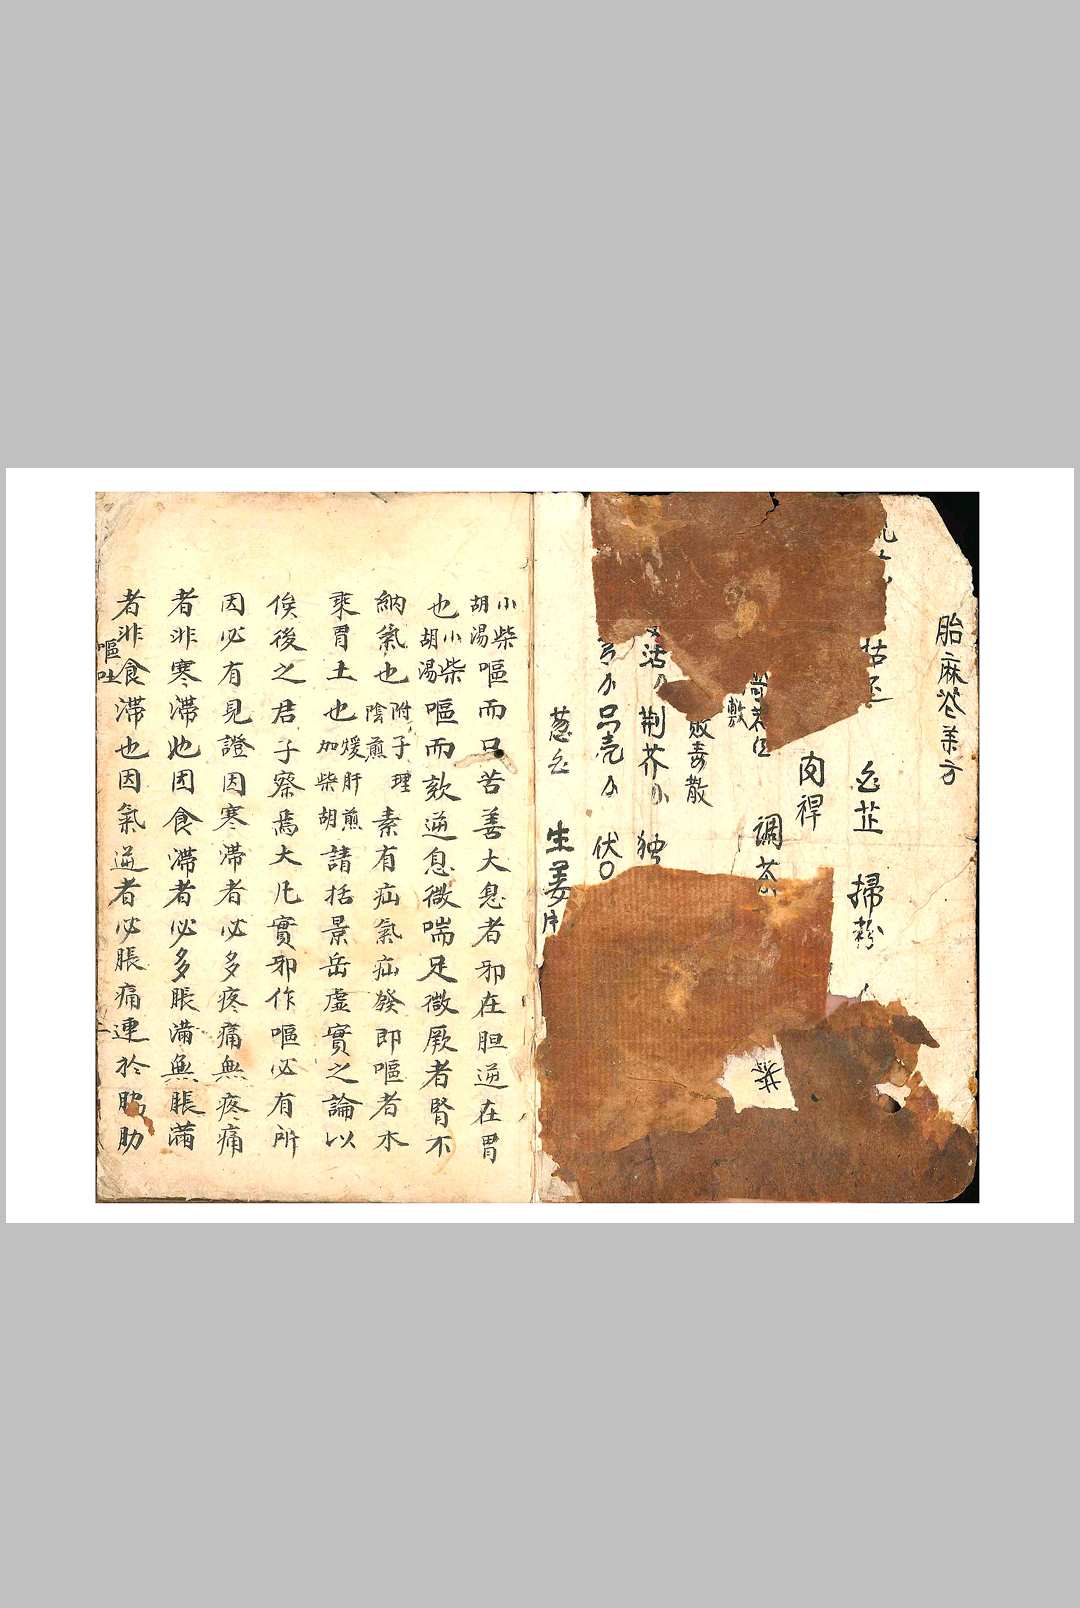 胎麻花茶方
白芷 掃粉
肉桿
調茶
敷
敗毒散
活 荆芥 独
伏
葱白 生姜
小柴胡湯嘔而口苦善大息者邪在胆逆在胃
也小柴胡湯嘔而欬逆息微喘足微厥者腎不
納氣也附子理陰煎素有疝氣疝發即嘔者木
乘胃土也煖肝煎加柴胡諸括景岳虛實之論以
俟後之君子察焉大凡實邪作嘔必有所
因必有見證因寒滯者必多疼痛無疼痛
者非寒滯也因食滯者必多脹滿無脹滿
者非食滯也因氣逆者必脹痛連於脇肋
嘔吐